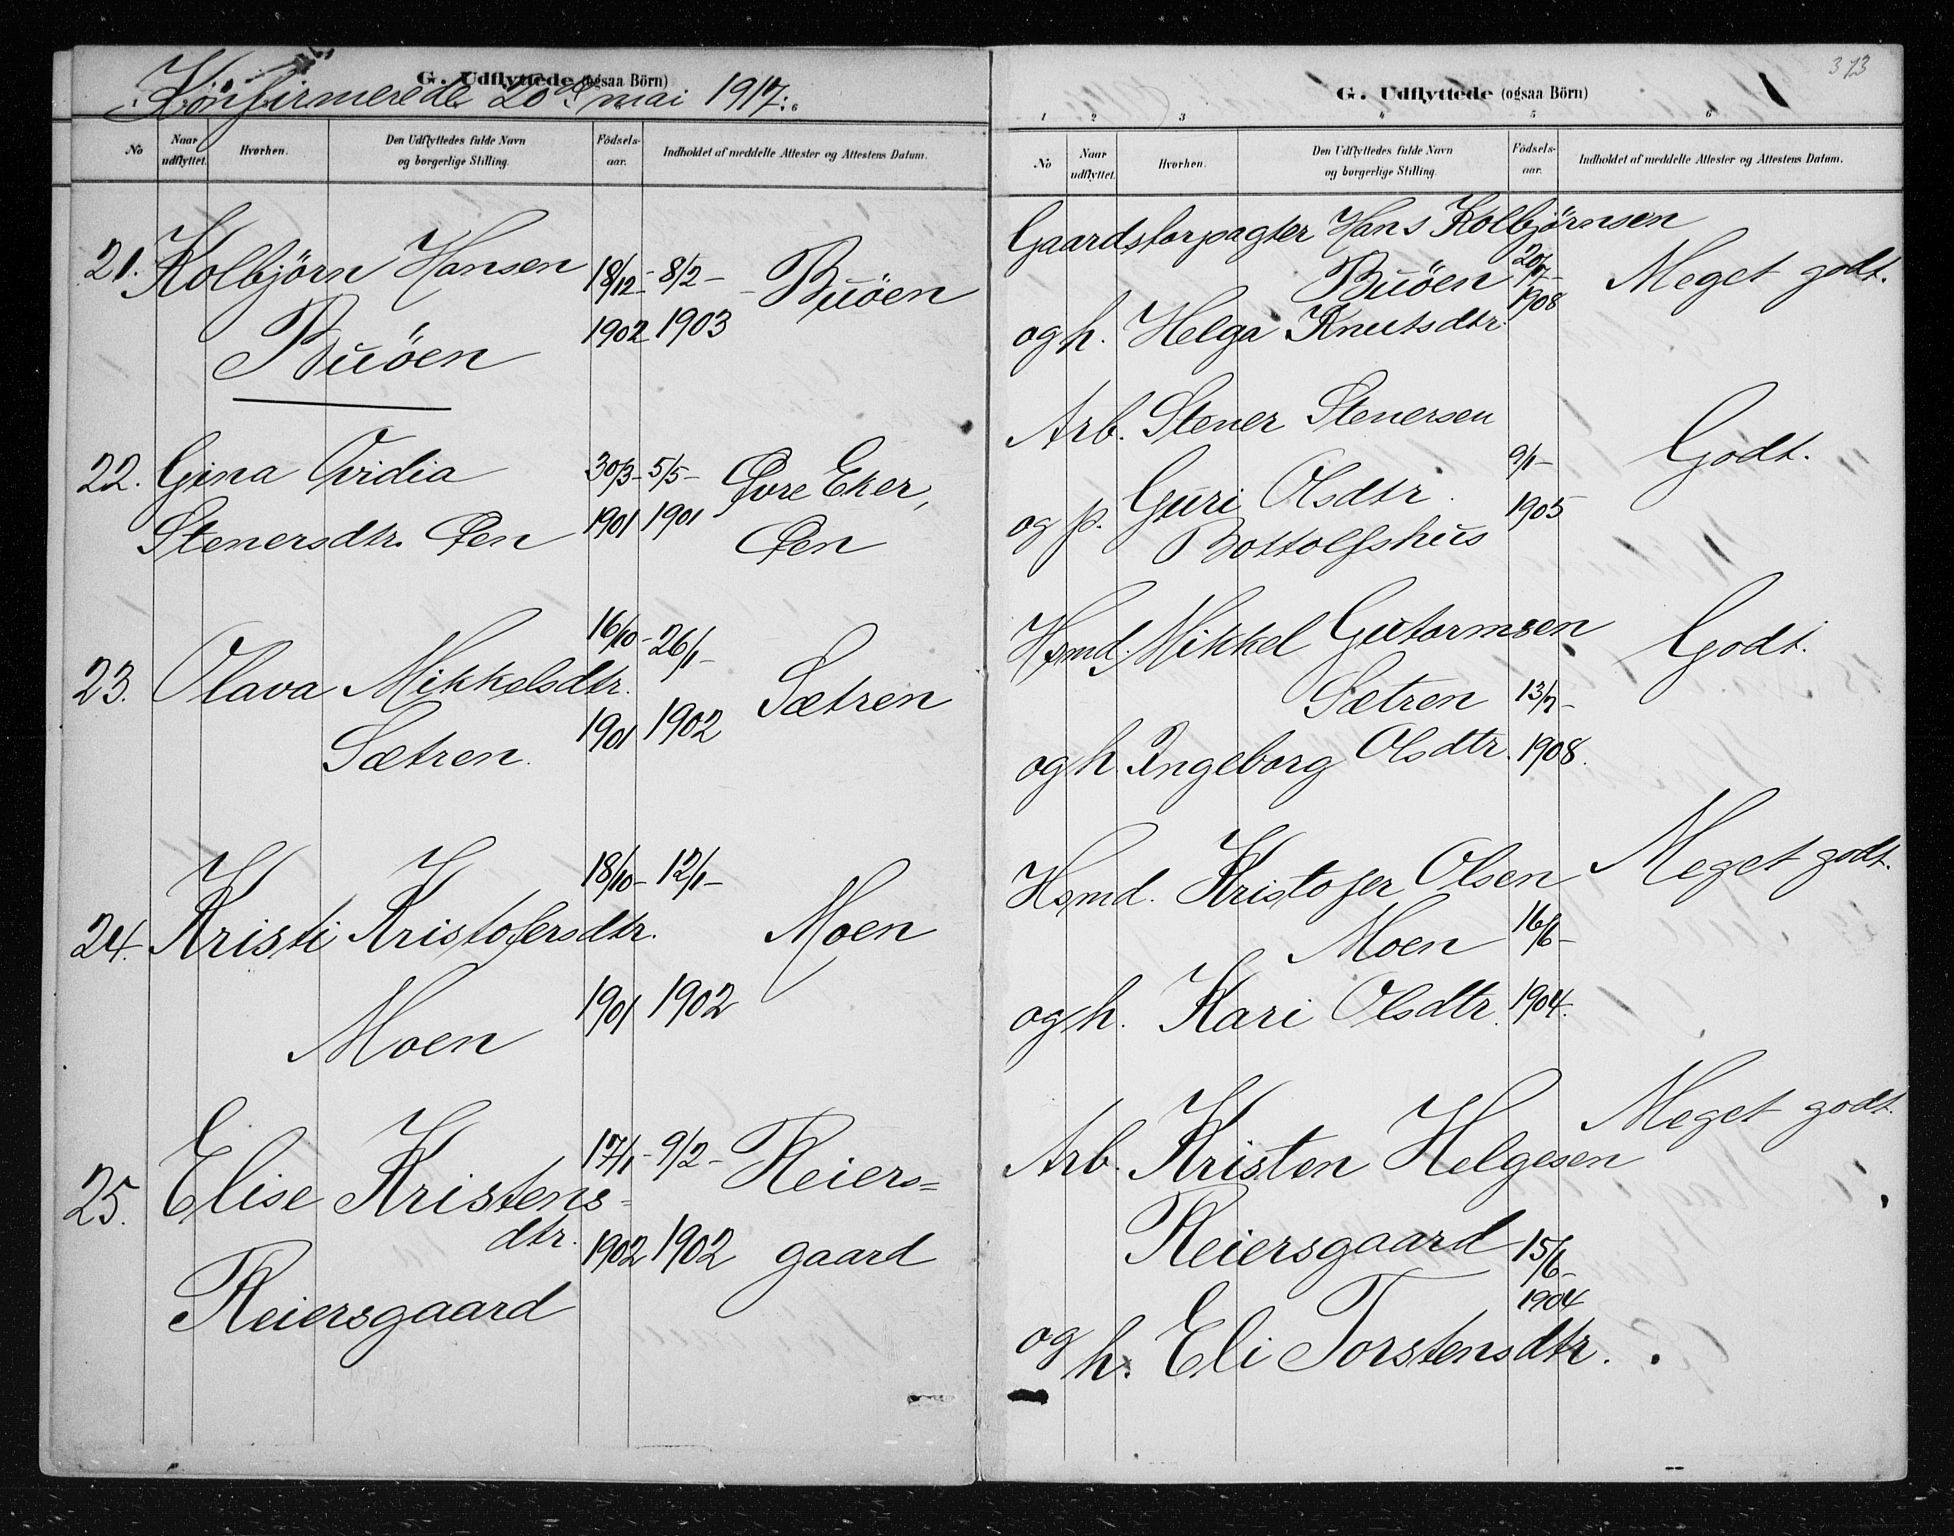 G. Udflyttede (ogsaa Börn)
Konfirmerede 20de mai 1917:
No
Naar udflyttet.
Hvorhen.
Den Udflyttedes fulde Navn og borgerlige Stilling.
Födsels-aar.
Indholdet af meddelte Attester og Attestens Datum.
21. Kolbjörn Hansen 18/12- 8/2- Buöen
Buöen 1902 1903
22. Gina Ovidia 30/3- 5/5- Øvre Eker,
Stenersdtr. Øen 1901 1901 Øen
23. Olava Mikkelsdtr. 16/10- 26/1- Sætren
Sætren. 1901 1902
24. Kristi Kristofersdtr. 18/10- 12/1- Moen
Moen 1901 1902
25. Elise Kristens= 17/1- 9/2- Reiers=
dtr. 1902 1902 gaard
Reiersgaard
373
G. Udflyttede (ogsaa Börn)
1 2 3 4 5 6
No
Naar udflyttet.
Hvorhen.
Den Udflyttedes fulde Navn og borgerlige Stilling.
Födsels-aar.
Indholdet af meddelte Attester og Attestens Datum.
Gaardsforpagter Hans Kolbjörnsen
Buöen 20/7- Meget godt.
og h. Helga Knutsdtr. 1908
Arb. Stener Stenersen
og p. Guri Olsdtr. 9/1- Godt.
Bottolfshus 1905
Hsmd. Mikkel Gutormsen Godt.
Sætren 13/7-
og h Ingeborg Olsdtr. 1908.
Hsmd. Kristofer Olsen Meget godt.
Moen 16/6-
og h. Kari Olsdtr. 1904.
Arb. Kristen Helgesen Meget godt.
Reiersgaard 15/6-
1904
og h. Eli Torstensdtr.